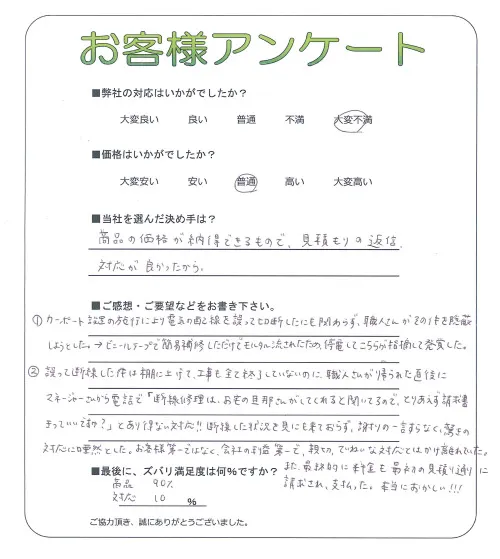 お客様アンケート
■弊社の対応はいかがでしたか?
大変良い 良い 普通 不満 大変不満
■価格はいかがでしたか?
大変安い 安い 普通 高い 大変高い
■当社を選んだ決め手は?
商品の価格が納得できるもので、見積もりの返信、
対応が良かったから。
■ご感想・ご要望などをお書き下さい。
① カーポート設置の施行により電気の配線を誤って切断したにも関わらず、職人さんがその件を隠蔽
しようとした。→ビニールテープで簡易補修しただけでモルタル流されたため、停電してこちらが指摘して発覚した。
② 誤って断線した件は棚に上げて、工事も全て終了していないのに、職人さんが帰られた直後に
マネージャーさんから電話で「断線修理は、お宅の旦那さんがしてくれると聞いてるので、とりあえず請求書
まっていいですか?」とあり得ない対応!!断線した状況を見にも来ておらず、謝りの一言すらなく、驚きの
対応に唖然とした。お客様第一ではなく、会社の利益第一で、親切、ていねいな対応とはかけ離れていた。
また、最終的に料金も最初の見積り通りに
請求され、支払った。本当におかしい!!!
■最後に、ズバリ満足度は何%ですか?
商品 90%
対応 10 %
ご協力頂き、誠にありがとうございました。